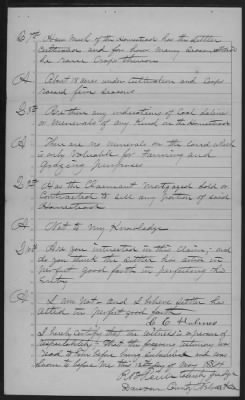 Q 7th How much of the Homestead has the Settler
Cultivated and for how many Seasons did he
he raise Crops thereon
A About 18 acres under Cultivation and Crops
raised five Seasons
Q 8th Are there any indications of Coal, Salines
or Minerals of any Kind on the Homestead
A There are no minerals on the Land which
is only Valuable for Farming and
Grazing purposes
Q 9th Has the Claimant Mortgaged Sold or
Contracted to Sell any Portion of said
Homestead
A Not to my Knowledge
Q 10th Are you interested in this Claim, and
do you think the Settler has acted in
perfect good faith in perfecting his
Entry
A I am not and I believe Settler has
acted in perfect good faith
C C Holmes
I hereby certify that the witness is a person of
respectability; that the foregoing testimony was
read to him before being Subscribed and was
Sworn to before me this day of May 1884
Judge
Dawson County Nebraska